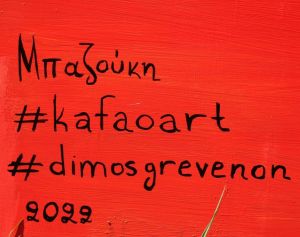 Μπαζούκη
#kafaoart
#dimosgrevenon
2022